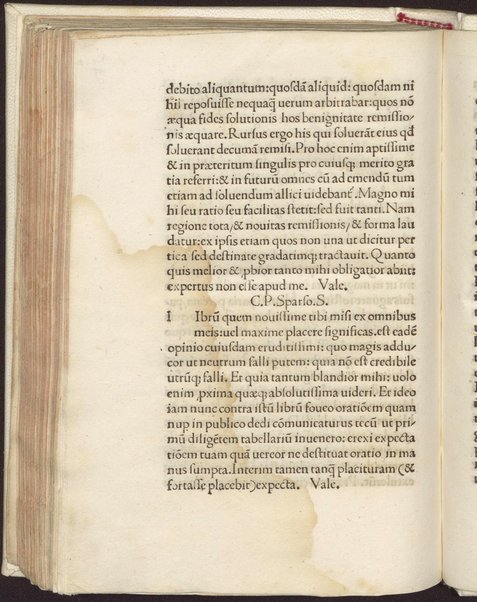 debito aliquantum:quosdã aliquid: quosdam ni
hil reposuisse nequaq̃ uerum arbitrabar:quos nõ
æqua fides solutionis hos benignitate remissio/
nis æquare. Rursus ergo his qui soluerãt eius qđ
soluerant decumã remisi. Pro hoc enim aptissime
& in præteritum singulis pro cuiusq; merito gra
tia referri:& in futurũ omnes cũ ad emendũ tum
etiam ad soluendum allici uidebant̃. Magno mi
hi seu ratio seu facilitas stetit:sed fuit tanti. Nam
regione tota/& nouitas remissionis/& forma lau
datur:ex ipsis etiam quos non una ut dicitur per
tica sed destinate gradatimq; tractauit. Quanto
quis melior & ꝓbior tanto mihi obligatior abiit:
expertus non esse apud me. Vale.
C.P.Sparso.S.
l Ibrũ quem nouissime tibi misi ex omnibus
meis:uel maxime placere significas.est eadẽ
opinio cuiusdam eruditissimi: quo magis addu
cor ut neutrum falli putem: quia nõ est credibile
utrũq; falli. Et quia tantum blandior mihi: uolo
enim ꝓxima quæq; absolutissima uideri. Et ideo
iam nunc contra istũ librũ foueo oratiõem quam
nup in publico dedi cõmunicaturus tecũ ut pri-
mũ diligẽtem tabellariũ inuenero: erexi expecta
tiõem tuam quã uereor ne destituat oratio in ma
nus sumpta.Interim tamen tanq̃ placituram (&
fortasse placebit)expecta. Vale.